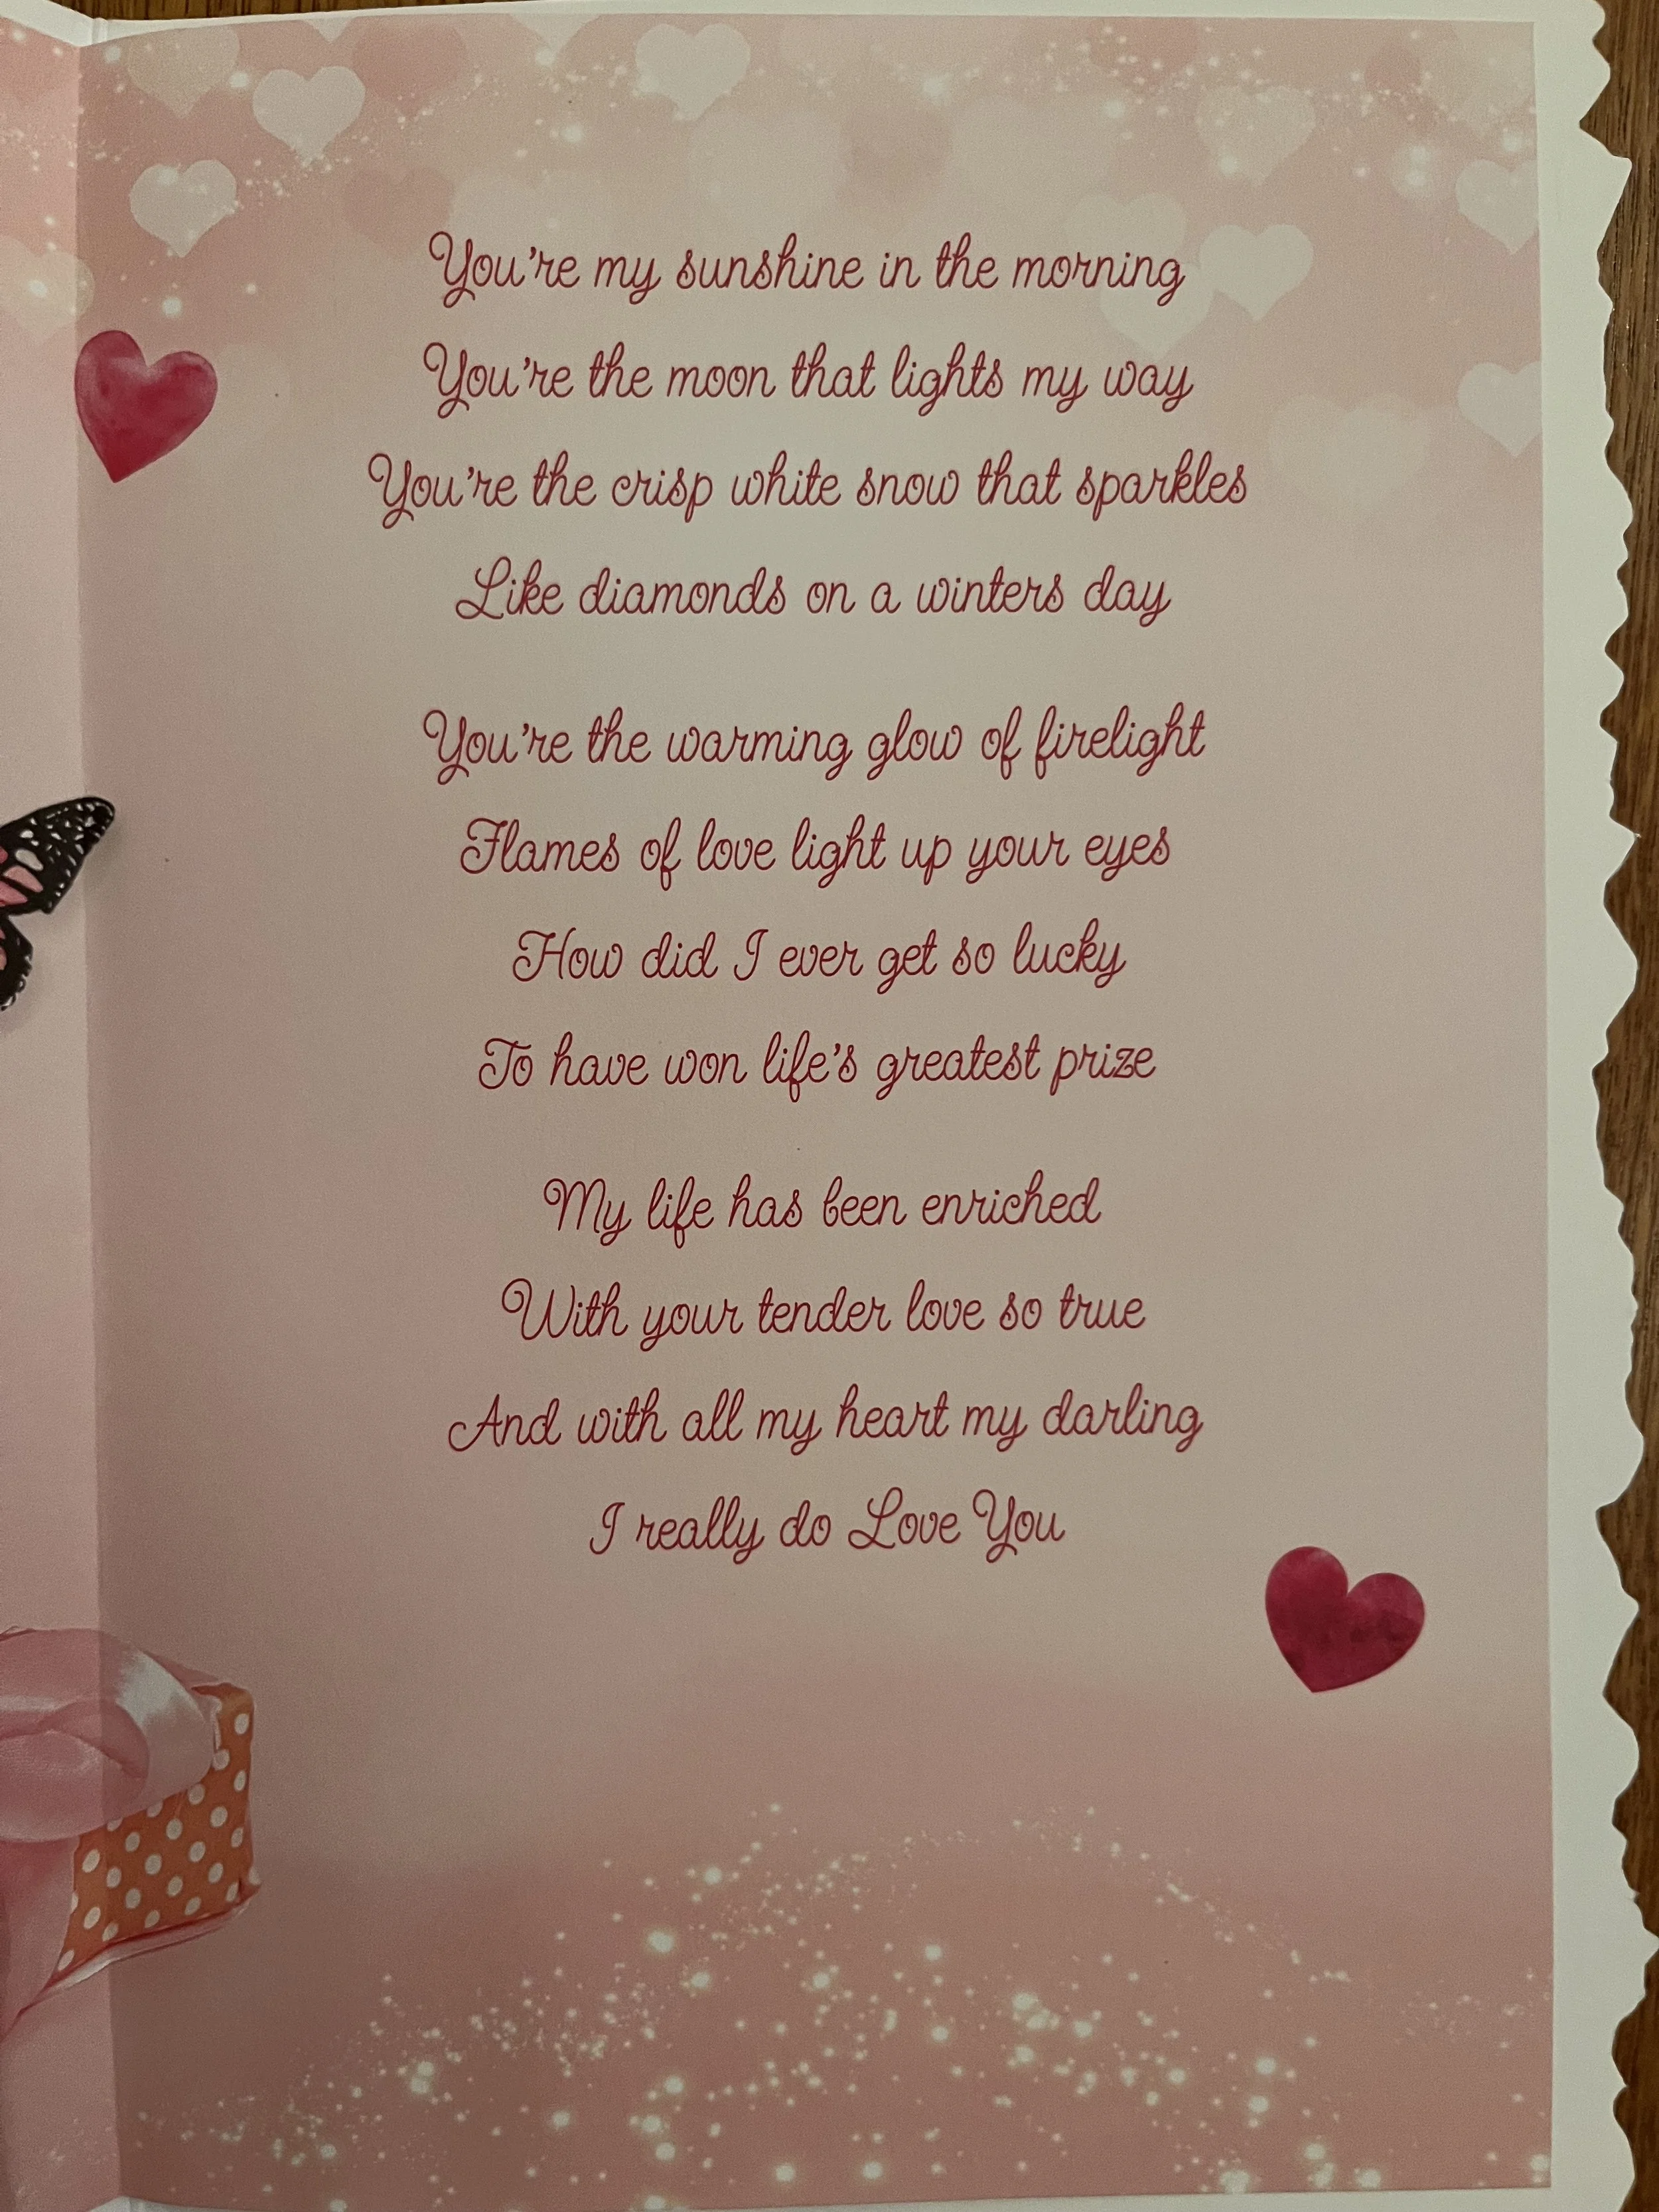 You're my sunshine in the morning
You're the moon that lights my way
You're the crisp white snow that sparkles
Like diamonds on a winters day
You're the warming glow of firelight
Flames of love light up your eyes
How did I ever get so lucky
To have won life's greatest prize
My life has been enriched
With your tender love so true
And with all my heart my darling
I really do Love You